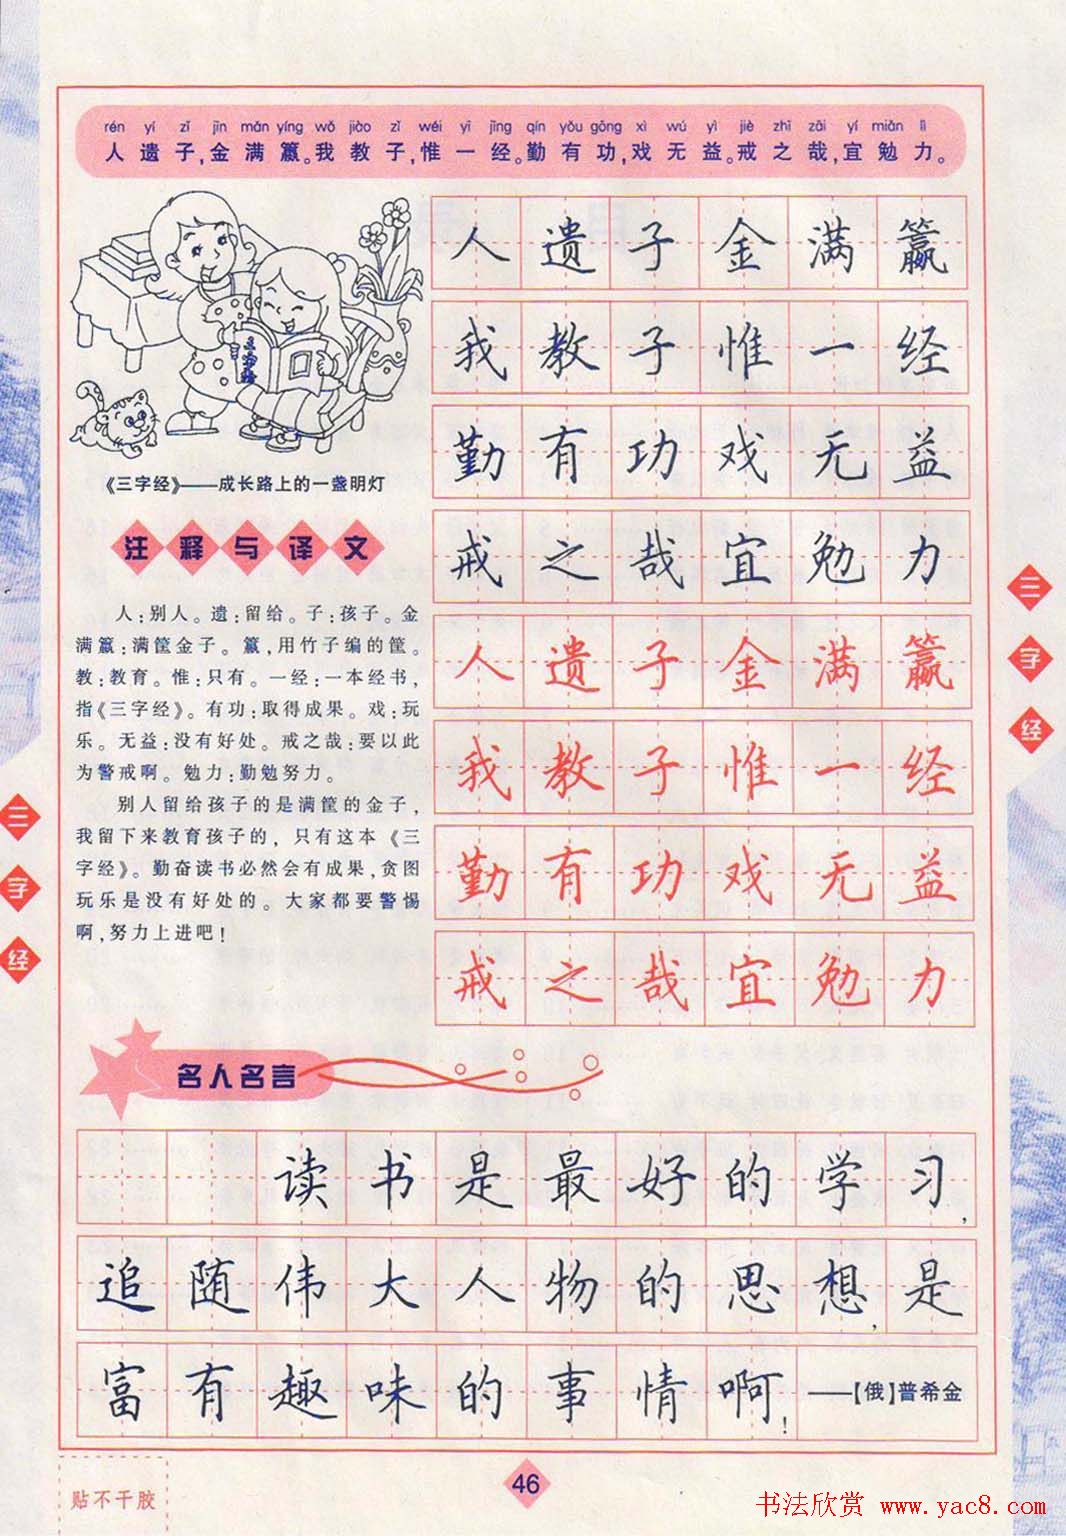 rén yí zǐ jīn mǎn yíng wǒ jiào zǐ wéi yī jīng qín yǒu gōng xì wú yì jiè zhī zāi yí miǎn lì
人遗子,金满籯。我教子,惟一经。勤有功,戏无益。戒之哉,宜勉力。
人遗子金满籯
我教子惟一经
勤有功戏无益
戒之哉宜勉力
人遗子金满籯
我教子惟一经
勤有功戏无益
戒之哉宜勉力
三字经
《三字经》——成长路上的一盏明灯
注释与译文
人:别人。遗:留给。子:孩子。金
满籯:满筐金子。籯,用竹子编的筐。
教:教育。惟:只有。一经:一本经书,
指《三字经》。有功:取得成果。戏:玩
乐。无益:没有好处。戒之哉:要以此
为警戒啊。勉力:勤勉努力。
别人留给孩子的是满筐的金子,
我留下来教育孩子的,只有这本《三
字经》。勤奋读书必然会有成果,贪图
玩乐是没有好处的。大家都要警惕
啊,努力上进吧!
三字经
三字经
名人名言
读书是最好的学习,
追随伟大人物的思想,是
富有趣味的事情啊!——【俄】普希金
贴不干胶
46
书法欣赏 www.yac8.com